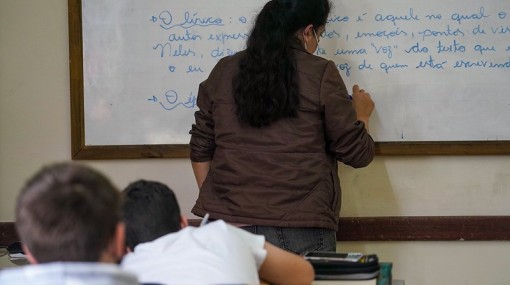 → O lírico: o é aquele no qual o
autor expres emoções, pontos de vis
Neles, diz de uma "voz" do texto que
o eu voz de quem está escreven
→ O é